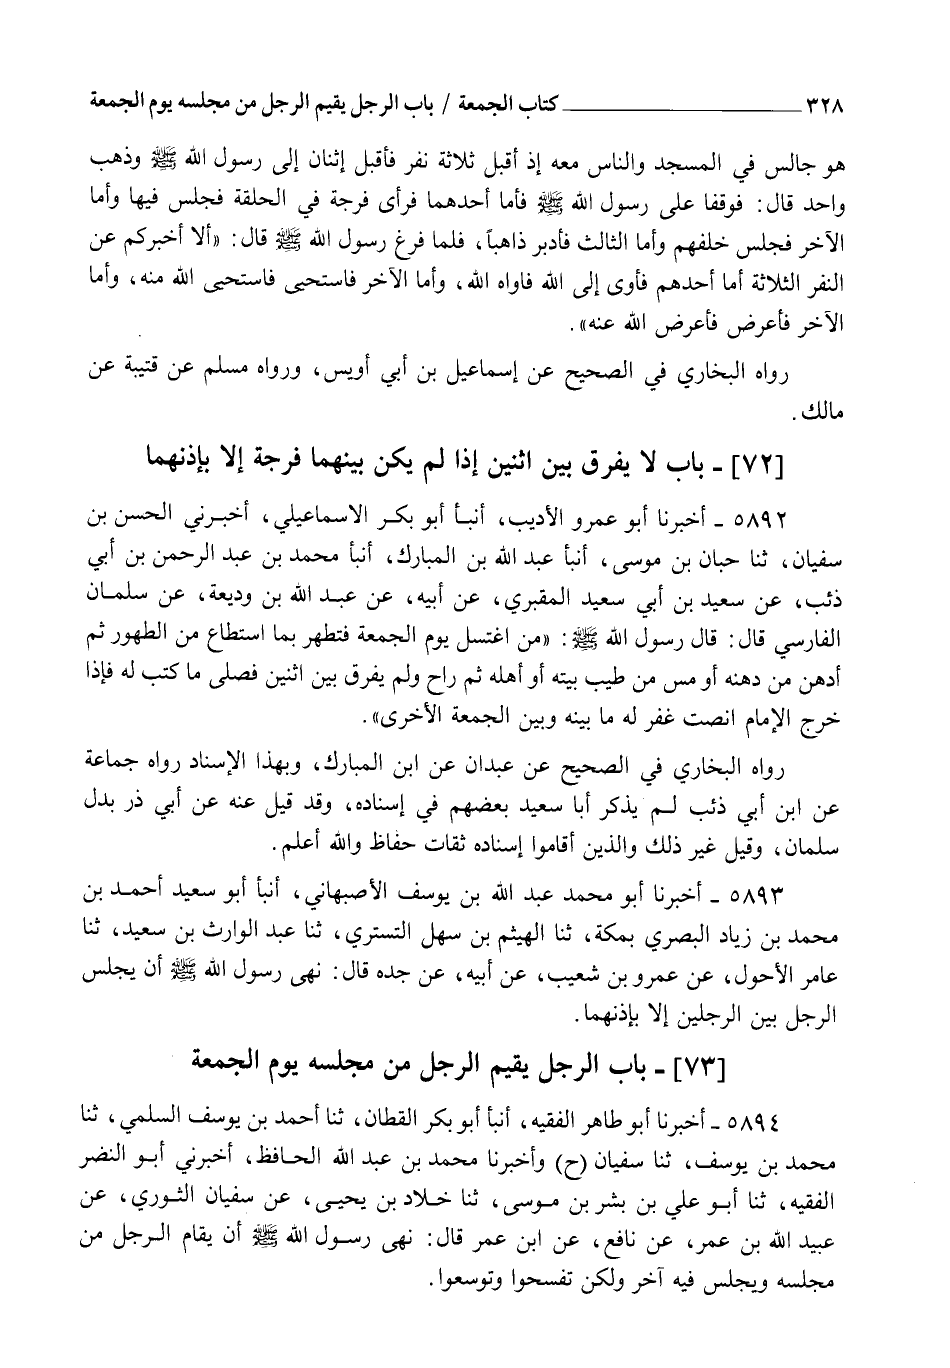 ٣٢٨ ــــــــــــــــــــ كتاب الجمعة / باب الرجل يقيم الرجل من مجلسه يوم الجمعة
هو جالس في المسجد والناس معه إذ أقبل ثلاثة نفر فأقبل إثنان إلى رسول الله ﷺ وذهب
واحد قال: فوقفا على رسول الله ﷺ فأما أحدهما فرأى فرجة في الحلقة فجلس فيها وأما
الآخر فجلس خلفهم وأما الثالث فأدبر ذاهباً، فلما فرغ رسول الله ﷺ قال: «ألا أخبركم عن
النفر الثلاثة أما أحدهم فأوى إلى الله فاواه الله، وأما الآخر فاستحيى فاستحيى الله منه، وأما
الآخر فأعرض فأعرض الله عنه».
رواه البخاري في الصحيح عن إسماعيل بن أبي أويس، ورواه مسلم عن قتيبة عن
مالك.
[٧٢] ـ باب لا يفرق بين اثنين إذا لم يكن بينهما فرجة إلا بإذنهما
٥٨٩٢ ـ أخبرنا أبو عمرو الأديب، أنبأ أبو بكر الاسماعيلي، أخبرني الحسن بن
سفيان، ثنا حبان بن موسى، أنبأ عبد الله بن المبارك، أنبأ محمد بن عبد الرحمن بن أبي
ذئب، عن سعيد بن أبي سعيد المقبري، عن أبيه، عن عبد الله بن وديعة، عن سلمان
الفارسي قال: قال رسول الله ﷺ: «من اغتسل يوم الجمعة فتطهر بما استطاع من الطهور ثم
أدهن من دهنه أو مس من طيب بيته أو أهله ثم راح ولم يفرق بين اثنين فصلى ما كتب له فإذا
خرج الإمام انصت غفر له ما بينه وبين الجمعة الأخرى».
رواه البخاري في الصحيح عن عبدان عن ابن المبارك، وبهذا الإسناد رواه جماعة
عن ابن أبي ذئب لم يذكر أبا سعيد بعضهم في إسناده، وقد قيل عنه عن أبي ذر بدل
سلمان، وقيل غير ذلك والذين أقاموا إسناده ثقات حفاظ والله أعلم.
٥٨٩٣ ـ أخبرنا أبو محمد عبد الله بن يوسف الأصبهاني، أنبأ أبو سعيد أحمد بن
محمد بن زياد البصري بمكة، ثنا الهيثم بن سهل التستري، ثنا عبد الوارث بن سعيد، ثنا
عامر الأحول، عن عمرو بن شعيب، عن أبيه، عن جده قال: نهى رسول الله ﷺ أن يجلس
الرجل بين الرجلين إلا بإذنهما.
[٧٣] ـ باب الرجل يقيم الرجل من مجلسه يوم الجمعة
٥٨٩٤ ـ أخبرنا أبو طاهر الفقيه، أنبأ أبو بكر القطان، ثنا أحمد بن يوسف السلمي، ثنا
محمد بن يوسف، ثنا سفيان (ح) وأخبرنا محمد بن عبد الله الحافظ، أخبرني أبو النضر
الفقيه، ثنا أبو علي بن بشر بن موسى، ثنا خلاد بن يحيى، عن سفيان الثوري، عن
عبيد الله بن عمر، عن نافع، عن ابن عمر قال: نهى رسول الله ﷺ أن يقام الرجل من
مجلسه ويجلس فيه آخر ولكن تفسحوا وتوسعوا.